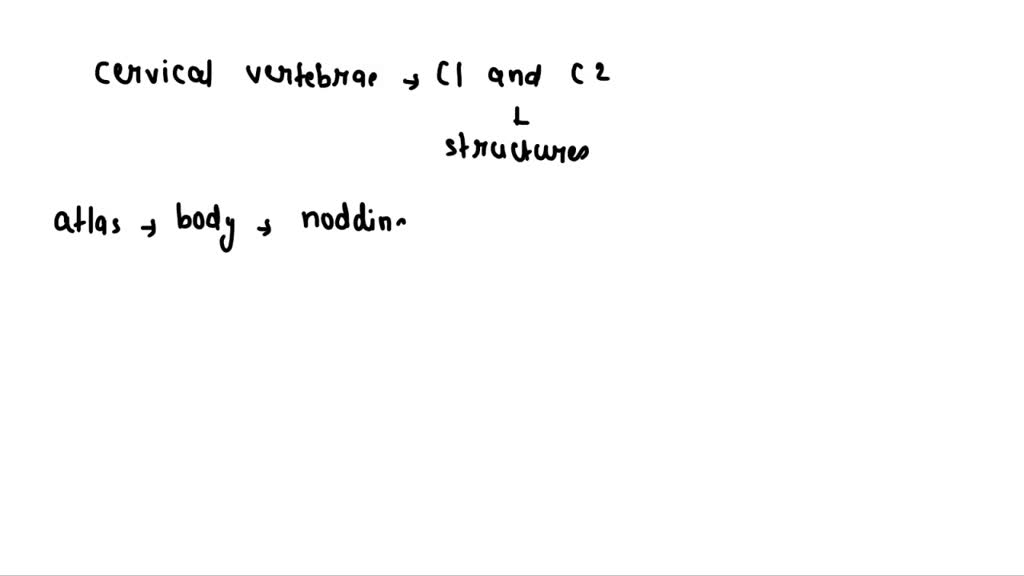 cervical vertebrae → C1 and C2
structures
atlas → body → noddin